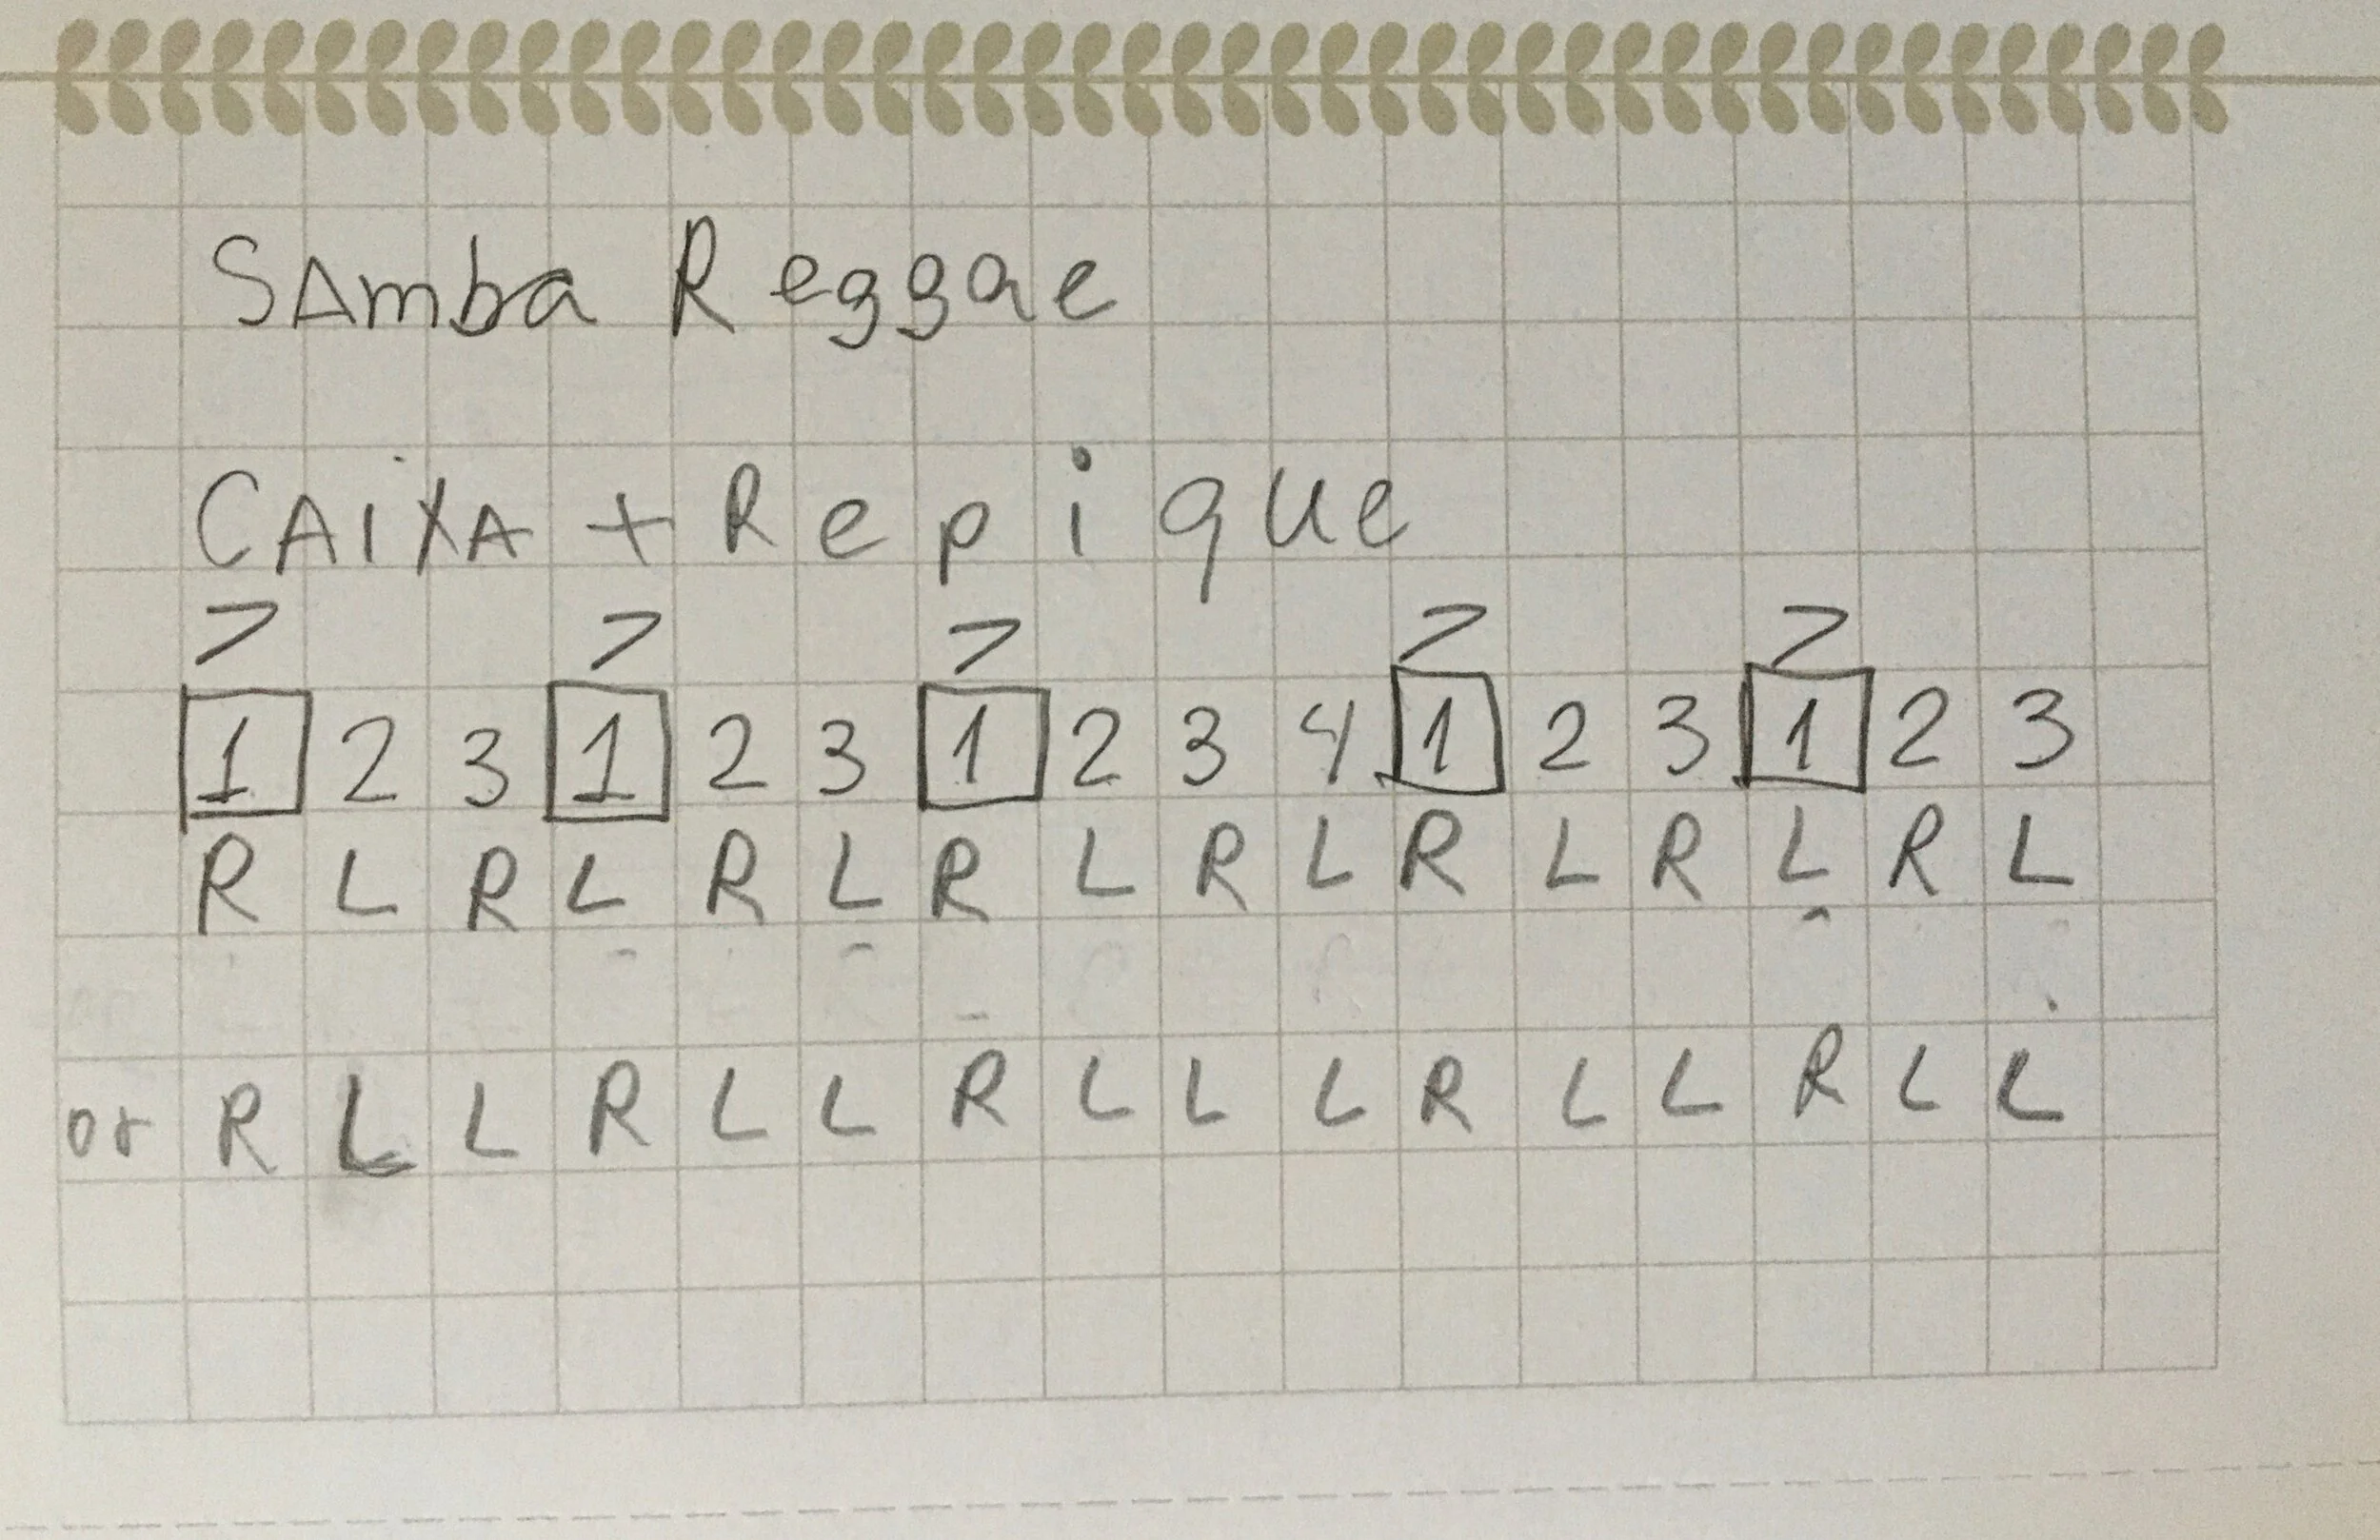 SAmba Reggae
CAixA + Repique
> > > > >
1 2 3 1 2 3 1 2 3 4 1 2 3 1 2 3
R L R L R L R L R L R L R L R L
or R L L R L L R L L L R L L R L L